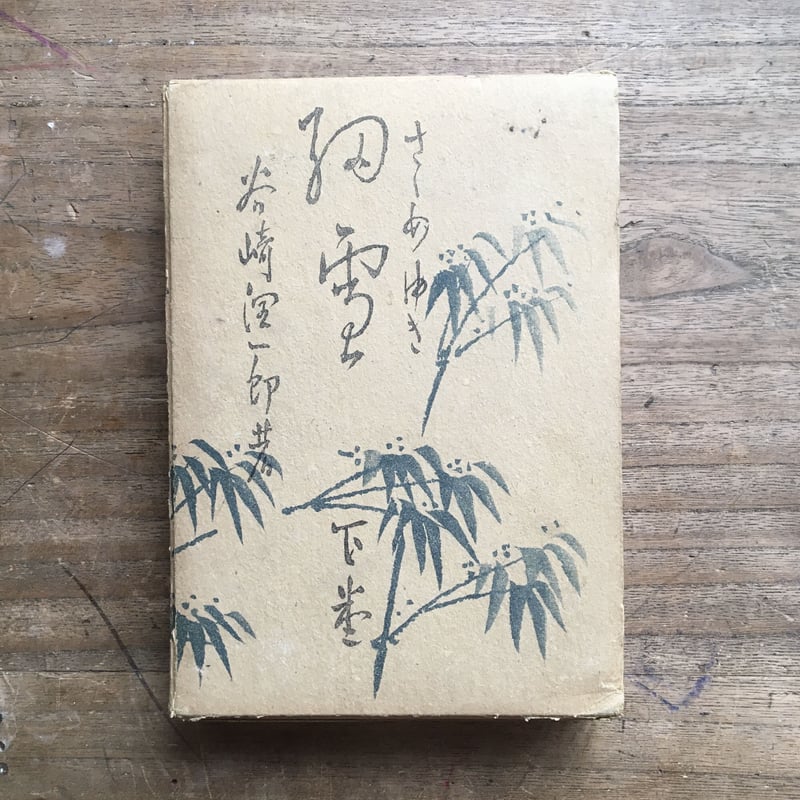 さゝめゆき
細雪
谷崎潤一郎著
下巻